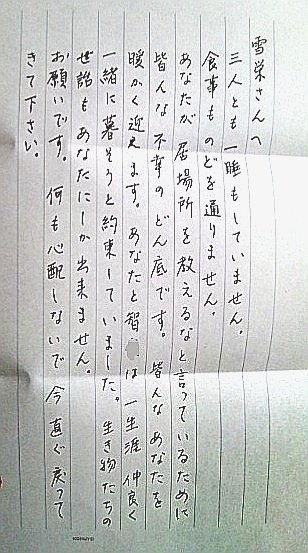 雪栄さんへ
三人とも一睡もしていません。
食事ものどを通りません。
あなたが居場所を教えるなと言っているために
皆んな不幸のどん底です。皆んなあなたを
暖かく迎えます。あなたと智は一生涯仲良く
一緒に暮そうと約束していました。生き物たちの
世話もあなたにしか出来ません。
お願いです。何も心配しないで今直ぐ戻って
きて下さい。
KOKUYO